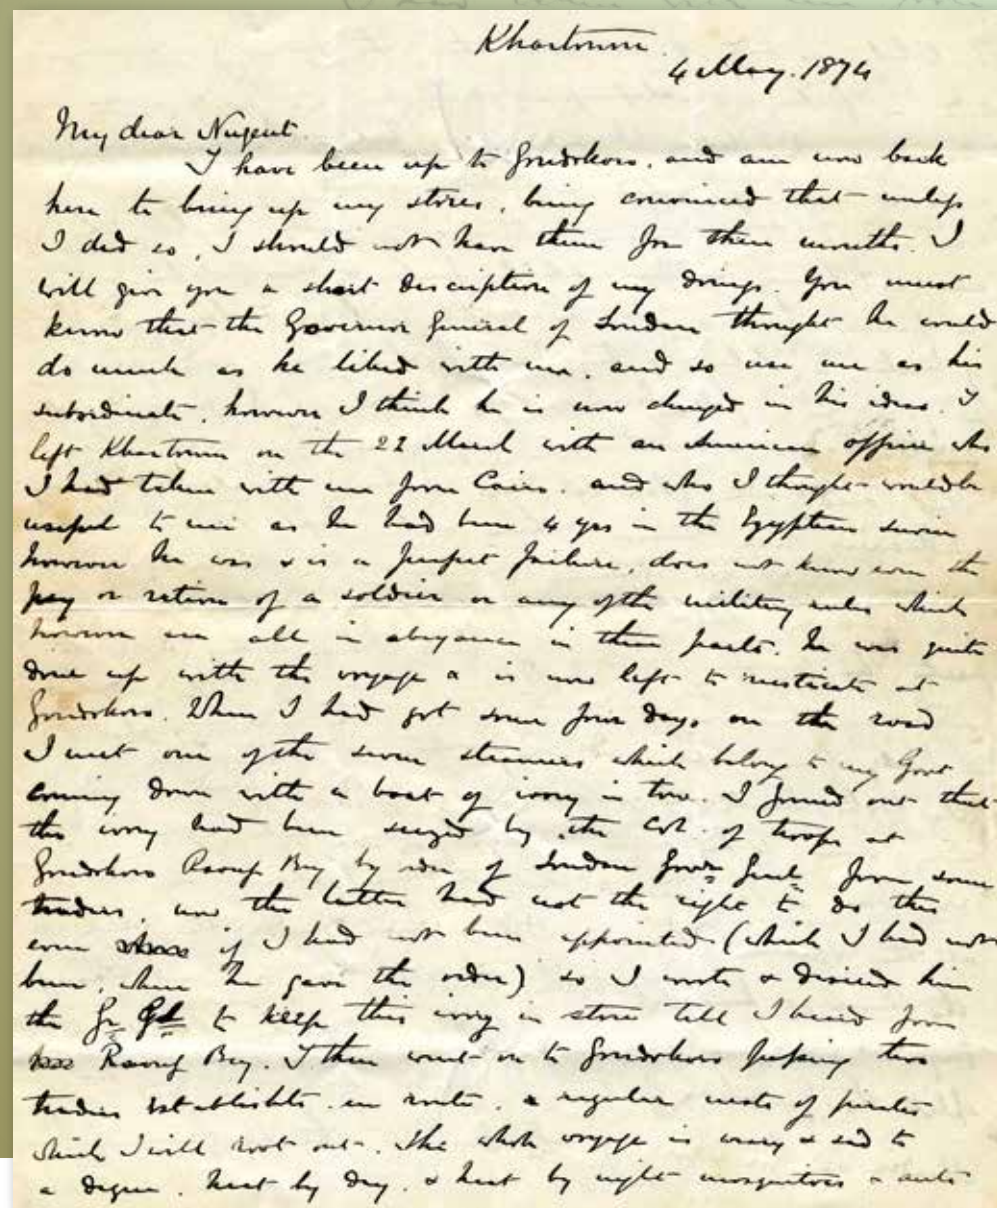 Khartoum
4 May. 1874
My dear Nugent.
I have been up to Gondokoro, and am now back
here to bring up my stores, being convinced that unless
I did so, I should not have them for three months. I
will give you a short description of my doings. You must
know that the Governor General of Soudan thought he could
do much as he liked with me, and so use me as his
subordinate, however I think he is now changed in his ideas. I
left Khartoum on the 22 March with an American officer who
I had taken with me from Cairo. and who I thought would be
useful to me as he had been 4 yrs in the Egyptian service
however he was & is a perfect failure, does not know even the
pay or ration of a soldier or any of the military rules which
however are all in abeyance in these parts. He was quite
done up with the voyage & is now left to rusticate at
Gondokoro. When I had got some four days on the road
I met one of the seven steamers which belong to my Govt
coming down with a boat of ivory in tow. I found out that
this ivory had been seized by the Col. of troops at
Gondokoro Raouf Bey by order of Soudan Govr Genl from some
traders, now the latter had not the right to do this
even if I had not been appointed (which I had not
been, when he gave the order) so I wrote & desired him
the Gr Gl to keep this ivory in store till I heard from
Raouf Bey. I then went on to Gondokoro passing two
traders establishts en route, a regular nests of pirates
which I will root out. The whole voyage is weary & sad to
a degree. heat by day, & heat by night mosquitoes & ants